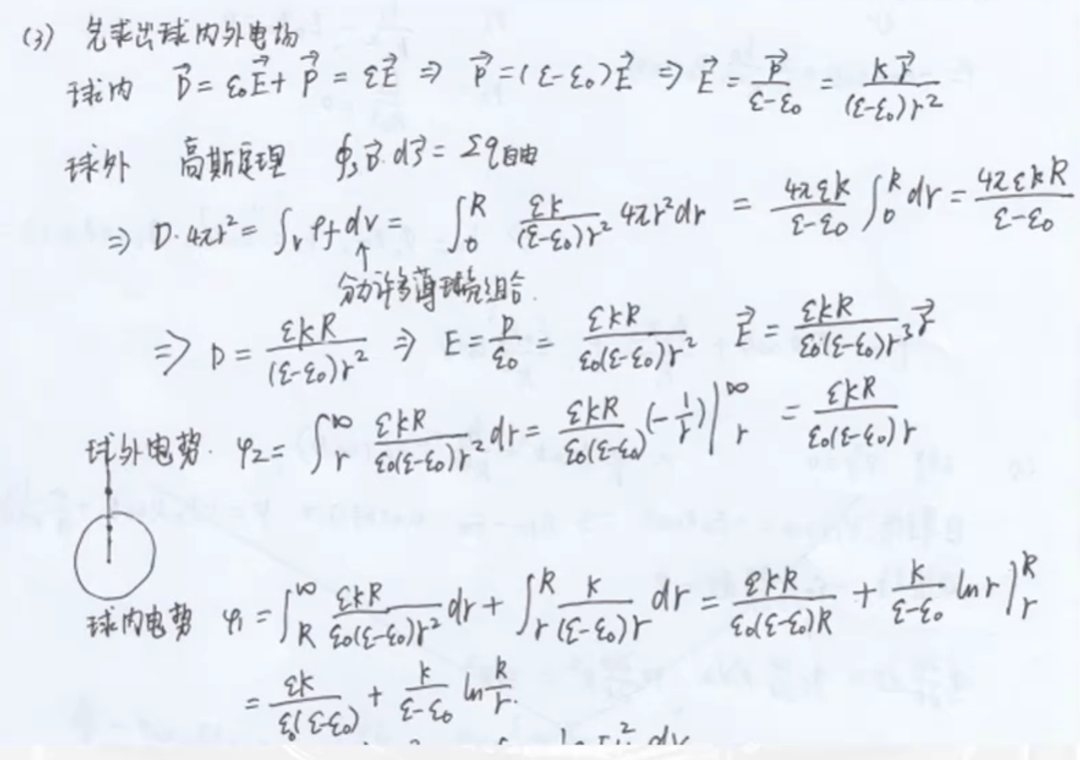 (3) 先求出球内外电场
球内 $\vec{D}=\varepsilon_0\vec{E}+\vec{P}=\varepsilon\vec{E} \Rightarrow \vec{P}=(\varepsilon-\varepsilon_0)\vec{E} \Rightarrow \vec{E}=\frac{\vec{P}}{\varepsilon-\varepsilon_0}=\frac{k\vec{R}}{(\varepsilon-\varepsilon_0)r^2}$
球外 高斯定理 $\oint_S \vec{D}\cdot d\vec{S}=\Sigma q_{自由}$
$\Rightarrow D\cdot 4\pi r^2=\int_V \rho_f dv=\int_0^R \frac{\varepsilon k}{(\varepsilon-\varepsilon_0)r^2}4\pi r^2 dr=\frac{4\pi\varepsilon k}{\varepsilon-\varepsilon_0}\int_0^R dr=\frac{4\pi\varepsilon kR}{\varepsilon-\varepsilon_0}$
↑
分为许多薄球壳组合.
$\Rightarrow D=\frac{\varepsilon kR}{(\varepsilon-\varepsilon_0)r^2} \Rightarrow E=\frac{D}{\varepsilon_0}=\frac{\varepsilon kR}{\varepsilon_0(\varepsilon-\varepsilon_0)r^2} \quad \vec{E}=\frac{\varepsilon kR}{\varepsilon_0(\varepsilon-\varepsilon_0)r^3}\vec{r}$
球外电势. $\varphi_2=\int_r^\infty \frac{\varepsilon kR}{\varepsilon_0(\varepsilon-\varepsilon_0)r^2}dr=\frac{\varepsilon kR}{\varepsilon_0(\varepsilon-\varepsilon_0)}(-\frac{1}{r})|_r^\infty=\frac{\varepsilon kR}{\varepsilon_0(\varepsilon-\varepsilon_0)r}$
球内电势 $\varphi_1=\int_R^\infty \frac{\varepsilon kR}{\varepsilon_0(\varepsilon-\varepsilon_0)r^2}dr+\int_r^R \frac{k}{(\varepsilon-\varepsilon_0)r}dr=\frac{\varepsilon kR}{\varepsilon_0(\varepsilon-\varepsilon_0)R}+\frac{k}{\varepsilon-\varepsilon_0}\ln r|_r^R$
$=\frac{\varepsilon k}{\varepsilon_0(\varepsilon-\varepsilon_0)}+\frac{k}{\varepsilon-\varepsilon_0}\ln\frac{R}{r}.$